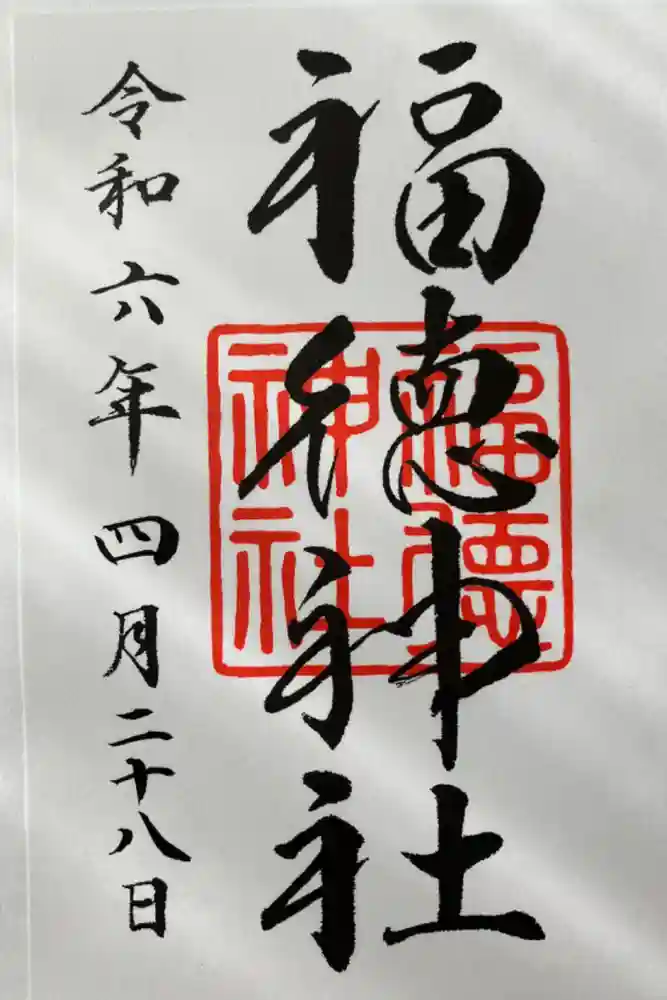 福徳神社
福徳
神社
令和六年 四月二十八日